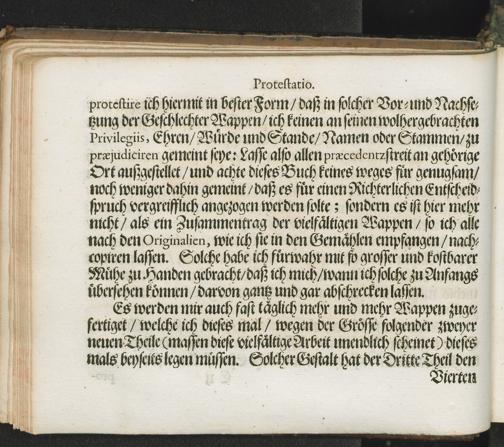 Protestatio.
protestire ich hiermit in bester Form / daß in solcher Vor- und Nachse-
tzung der Geschlechter Wappen / ich keinen an seinen wolhergebrachten
Privilegiis, Ehren / Würde und Stande / Namen oder Stammen / zu
præjudiciren gemeint seye: Lasse also allen præcedentzstreit an gehörige
Ort außgestellet / und achte dieses Buch keines weges für genugsam /
noch weniger dahin gemeint / daß es für einen Richterlichen Entscheid-
spruch vergreifflich angezogen werden solte ; sondern es ist hier mehr
nicht / als ein Zusammentrag der vielfältigen Wappen / so ich alle
nach den Originalien, wie ich sie in den Gemählen empfangen / nach-
copiren lassen. Solche habe ich fürwahr mit so grosser und kostbarer
Mühe zu Handen gebracht / daß ich mich / wann ich solche zu Anfangs
übersehen können / darvon gantz und gar abschrecken lassen.
Es werden mir auch fast täglich mehr und mehr Wappen zuge-
fertiget / welche ich dieses mal / wegen der Grösse folgender zweyer
neuen Theile (massen diese vielfältige Arbeit unendlich scheinet) dieses
mals beyseits legen müssen. Solcher Gestalt hat der Dritte Theil den
Vierten